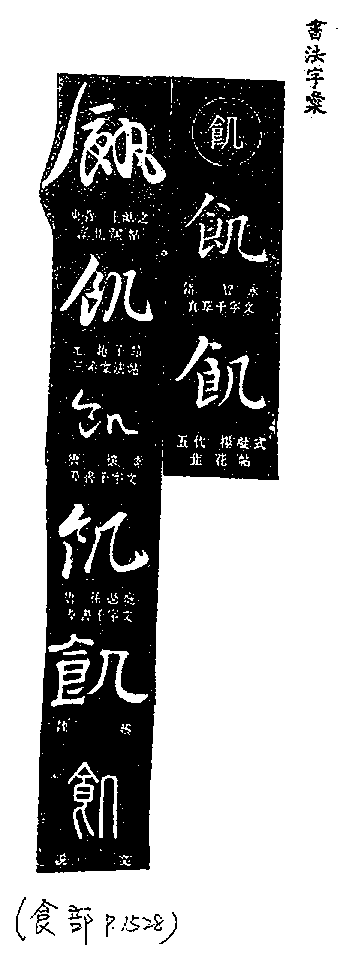 書法字彙
飢
飢
隋 智永
真草千字文
飢
五代 楊凝式
韭花帖
飢
東晉 王獻之
飢
元 趙子昂
三希堂法帖
飢
唐 懷素
草書千字文
飢
唐 孫過庭
草書千字文
飢
飢
說文
(食部 P.1528)